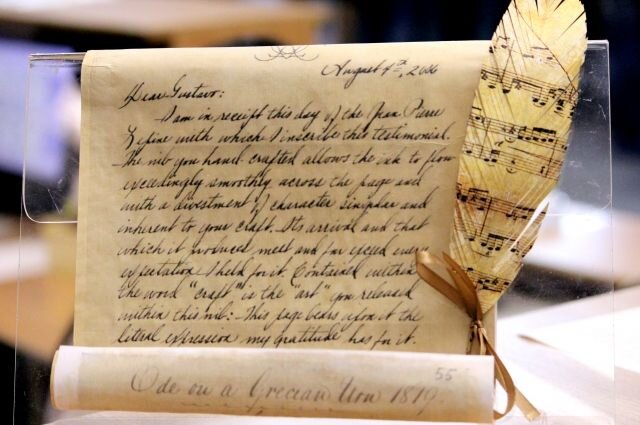 August 4th, 2006
Dear Gustavo:
I am in receipt this day of the Jean Pierre
Lépine with which I inscribe this testimonial.
The nib you hand crafted allows the ink to flow
exceedingly smoothly across the page and
with a divestment of character singular and
inherent to your craft. Its arrival and that
which it produced meet and far exceed every
expectation I held for it. Contained within
the word "craft" is the "art" you released
within this nib: This page bears upon it the
literal expression my gratitude has for it.
55
Ode on a Grecian Urn 1819.